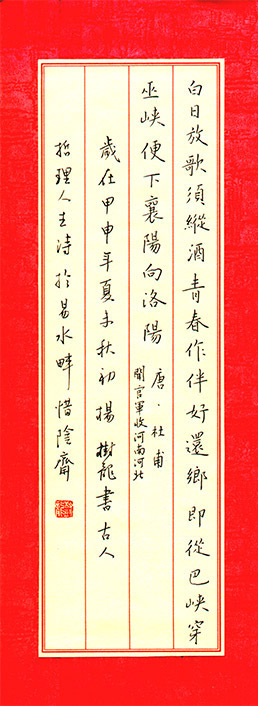 白日放歌須縱酒青春作伴好還鄉即從巴峽穿
巫峽便下襄陽向洛陽
唐·杜甫
聞官軍收河南河北
歲在甲申年夏末秋初楊樹龍書古人
哲理人生詩於易水畔惜陰齋